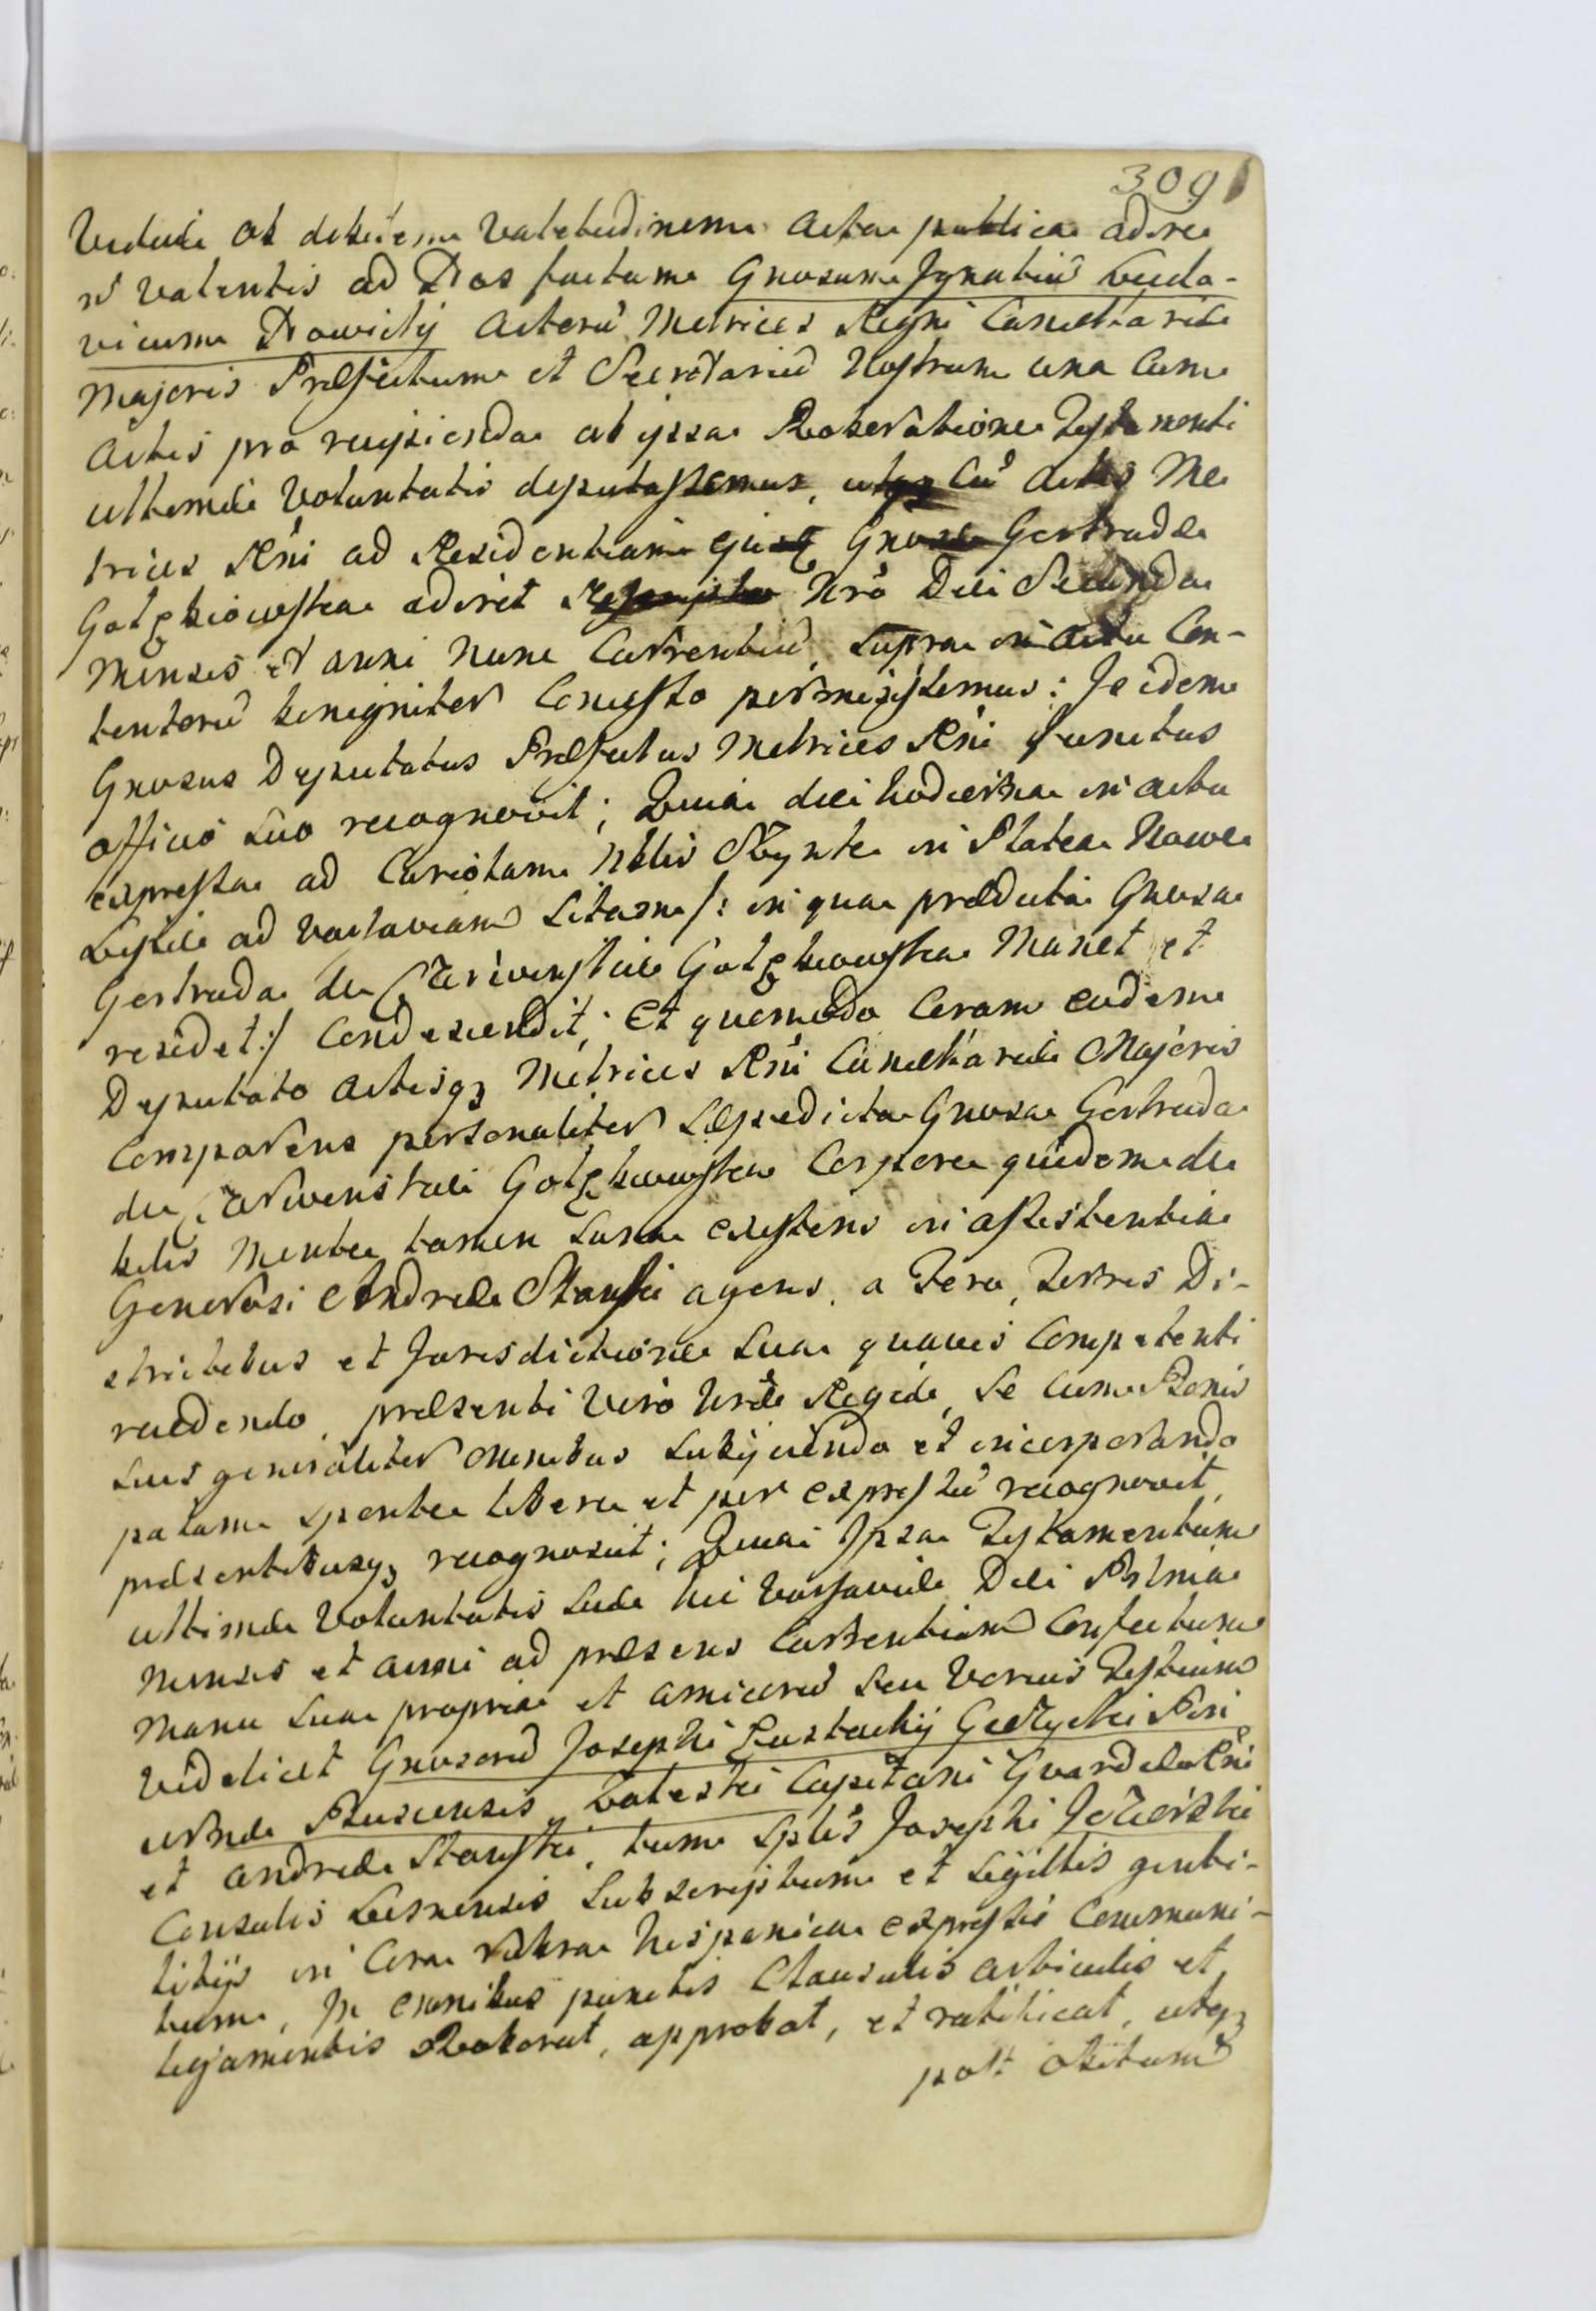 309
Viduae ob debilem Valetudinem Acta publica adire
n̄ Valentis ad Nos factam Gnosum Ignatiū Ludo-
vicum Nowicky Actorū Metrices Regni Cancellariae
Majoris Praefectum et Secretariū Nostrum una cum
Actis pro recipienda ab ipsa Roboratione Testamenti
ultimae Voluntatis deputassemus, utqz cū Actis Me
trices Rni ad Residentiam Gnosae Gertrudae
adiret Nrō Die Secunda
Mensis et anni nunc Currentiū, supra in actu Con-
tentorū benigniter Concesso permisissemus: Is idem
Gnosus Deputatus Praefectus Metrices Rni functus
officio suo recognovit; Quia die hodierna in actu
expressa ad Curiolam Nblis in Platea Nowe
ad Varsaviam Sitam /: in qua praedicta Gnosa
Gertruda de Manet et
residet :/ Condescendit; Et quomodo Coram eodem
Deputato Actisqz Metrices Rni Cancellariae Majoris
Comparens personaliter Saepedicta Gnosa Gertruda
de Corpore quidem de
bilis Mente tamen sana existens in assistentia
Generosi Andreae Stanski agens, a Foro, Terris Di-
strictibus et Jurisdictione sua quavis Competenti
recedendo, praesenti Vero Nrae Regiae, Se cum Bonis
suis generaliter omnibus subijciendo et incorporando
palam sponte libere et per expressū recognovit,
praesentibusqz recognoscit; Quia Ipsa Testamentum
ultimae Voluntatis suae hic Varsaviae Die Prima
Mensis et anni ad praesens Currentium Confectum
Manu sua propria et amicorū seu Verius Testium
Videlicet Gnosorū Josephi Eustachij
Capitani Guardiae Rni
et Andreae Stanski, tum Splis Josephi
Consulis subscriptum et sigillis genti-
litijs in Cera rubra hispanica expressis Communi-
tum, In omnibus punctis Clausulis articulis et
ligamentis Roborat, approbat, et ratificat, utqz
post obitum